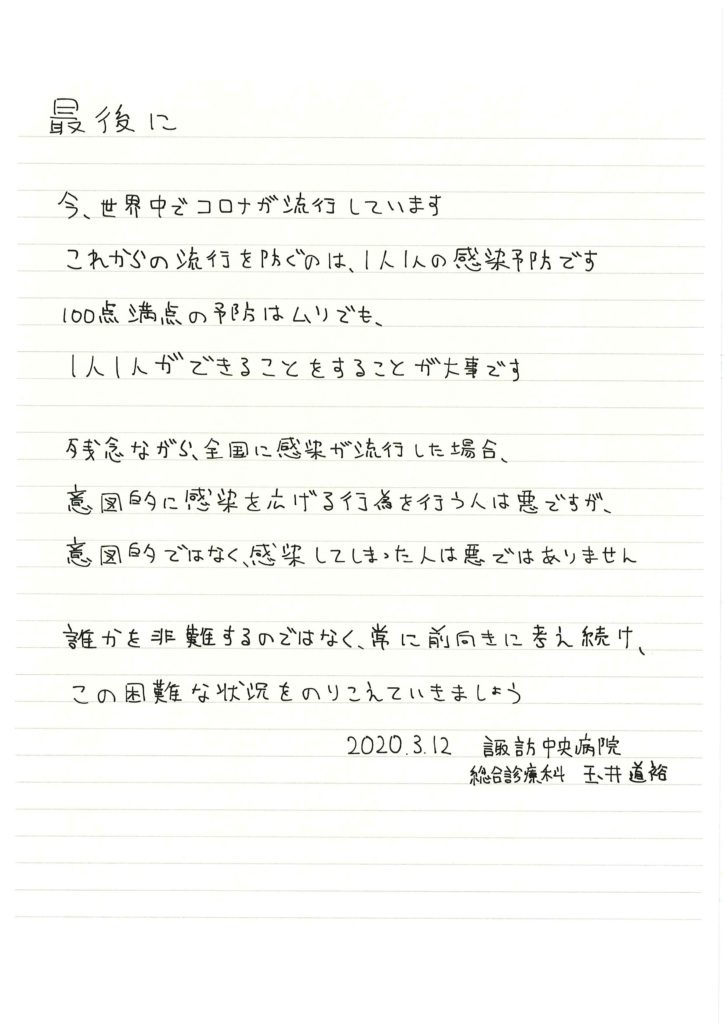 最後に
今、世界中でコロナが流行しています
これからの流行を防ぐのは、1人1人の感染予防です
100点満点の予防はムリでも、
1人1人ができることをすることが大事です
残念ながら、全国に感染が流行した場合、
意図的に感染を広げる行為を行う人は悪ですが、
意図的ではなく、感染してしまった人は悪ではありません
誰かを非難するのではなく、常に前向きに考え続け、
この困難な状況をのりこえていきましょう
2020.3.12 諏訪中央病院
総合診療科 玉井道裕